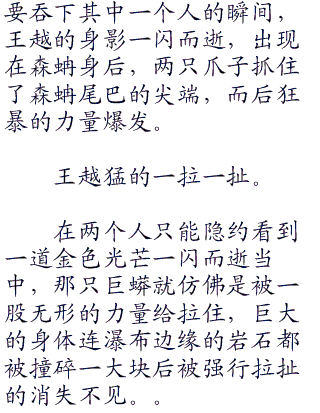 要吞下其中一个人的瞬间，
王越的身影一闪而逝，出现
在森蚺身后，两只爪子抓住
了森蚺尾巴的尖端，而后狂
暴的力量爆发。
王越猛的一拉一扯。
在两个人只能隐约看到
一道金色光芒一闪而逝当
中，那只巨蟒就仿佛是被一
股无形的力量给拉住，巨大
的身体连瀑布边缘的岩石都
被撞碎一大块后被强行拉扯
的消失不见。。